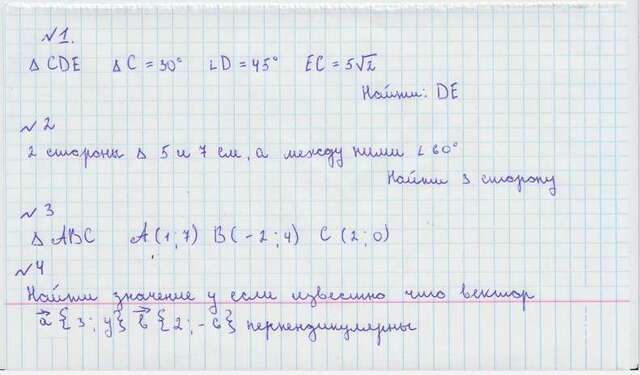 №1.
Δ CDE Δ C = 30° ∠D = 45° EC = 5√2
Найти: DE
№2
2 стороны Δ 5 и 7 см, а между ними ∠60°
Найти 3 сторону
№3
Δ ABC A(1;7) B(-2;4) C(2;0)
№4
Найти значение y если известно что вектор
a⃗{3; y} b⃗{2; -6} перпендикулярны